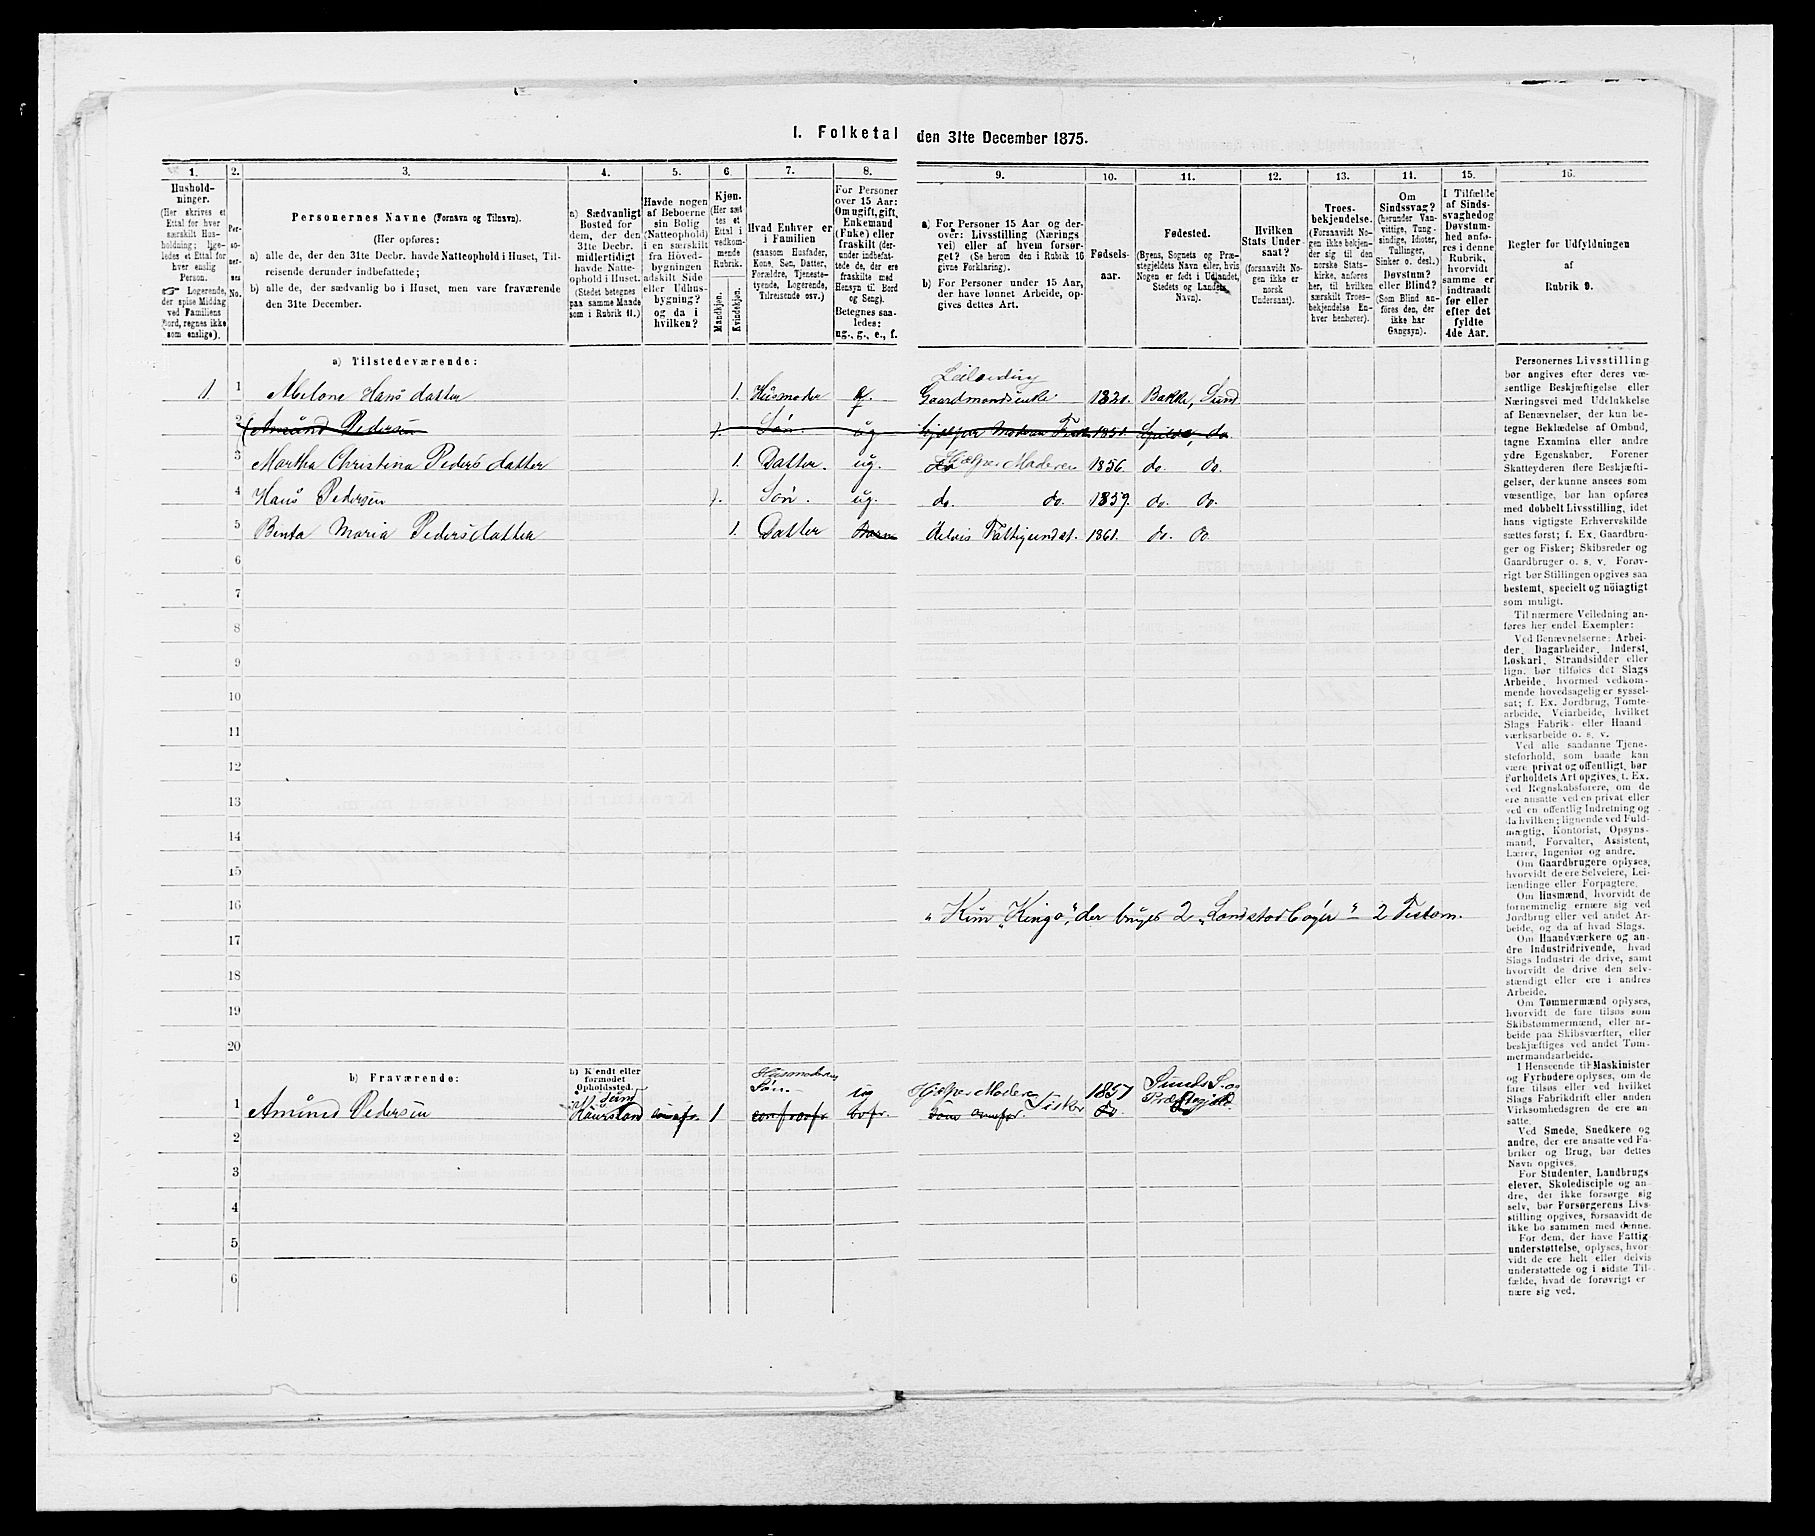 I. Folketal den 31te December 1875.
1. 2. 3. 4. 5. 6. 7. 8. 9. 10. 11. 12. 13. 14. 15. 16.
Hushold-
ninger.
(Her skrives et
Ettal for hver
særskilt Hus-
holdning; lige-
ledes et Ettal for
hver enslig
Person.
☞ Logerende,
der spise Middag
ved Familiens
Bord, regnes ikke
som enslige).
Per-
so-
ner-
nes
No.
Personernes Navne (Fornavn og Tilnavn).
(Her opføres:
a) alle de, der den 31te Decbr. havde Natteophold i Huset, Til-
reisende derunder indbefattede;
b) alle de, der sædvanlig bo i Huset, men vare fraværende
den 31te December.
a) Sædvanligt
Bosted for
dem, der den
31te Decbr.
midlertidigt
havde Natte-
ophold i Huset.
(Stedet betegnes
paa samme Maade
som i Rubrik 11.)
Havde nogen
af Beboerne
sin Bolig
(Natteophold)
i en særskilt
fra Hoved-
bygningen
adskilt Side
eller Udhus-
bygning?
og da i
hvilken?
Kjøn.
(Her sæt
tes et
Ettal i
vedkom-
mende
Rubrik.
Mandkjøn.
Kvindekjøn.
Hvad Enhver er
i Familien
(saasom Husfader,
Kone, Søn, Datter,
Forældre, Tjeneste-
tyende, Logerende,
Tilreisende osv.)
For Personer
over 15 Aar:
Om ugift, gift,
Enkemand
(Enke) eller
fraskilt (der-
under indbefat-
tede de, der ere
fraskilte med
Hensyn til Bord
og Seng).
Betegnes saa-
ledes:
ug., g., e., f.
a) For Personer 15 Aar og der-
over: Livsstilling (Nærings
vei) eller af hvem forsør-
get? (Se herom den i Rubrik 16
givne Forklaring).
b) For Personer under 15 Aar,
der have lønnet Arbeide, op-
gives dettes Art.
Fødsels-
aar.
Fødested.
(Byens, Sognets og Præ-
stegjeldets Navn eller, hvis
Nogen er født i Udlandet,
Stedets og Landets
Navn).
Hvilken
Stats Under-
saat?
(forsaavidt No-
gen ikke er
norsk
Undersaat).
Troes-
bekjendelse.
(Forsaavidt No-
gen ikke bekjen-
der sig til den
norske Stats-
kirke, anføres
her, til hvilken
særskilt Troes-
bekjendelse En-
hver henhører).
Om
Sindssvag?
(herunder Van-
vittige, Tung-
sindige, Idioter,
Tullinger,
Sinker o. desl.)
Døvstum?
eller Blind?
(Som Blind an-
føres den, der
ikke har
Gangsyn).
I Tilfælde
af Sinds-
svaghed og
Døvstum-
hed anfø-
res i denne
Rubrik,
hvorvidt
samme er
indtraadt
før eller
efter det
fyldte
4de Aar.
Regler for Udfyldningen
af
Rubrik 9.
a) Tilstedeværende:
Leilending
1. 1 Abelone Hans datter 1. Husmoder e. Gaardmandsenke 1821. Bakke, Sund
2 Amund Pedersen 1. Søn. ug
3 Martha Christina Peders datter 1. Datter. ug. Hjælper Moderen 1856. do. do.
4 Hans Pedersen 1. Søn. ug. do. do. 1859. do. do.
5 Benta Maria Pedersdatter 1. Datter Delvis Fattigundst. 1861. do. do.
6
7
8
9
10
11
12
13
14
15
16 "Kun "Kingo", der bruges 2
17
18
19
20
b) Fraværende:
b) Kjendt eller
formodet
Opholdssted.
Husmoderens
Søn. ug Hjælper Moderen 1857 Sunds S. og
1 Amund Pedersen 1 Fisker Præstegjeld.
2
3
4
5
6
Personernes Livsstilling
bør angives efter deres væ-
sentlige Beskjæftigelse eller
Næringsvei med Udelukkelse
af Benævnelser, der kun be-
tegne Beklædelse af Ombud,
tagne Examina eller andre
ydre Egenskaber. Forener
Skatteyderen flere Beskjæfti-
gelser, der kunne ansees som
væsentlige, bør han opføres
med dobbelt Livsstilling, idet
hans vigtigste Erhvervskilde
sættes først; f. Ex. Gaardbru-
ger og Fisker; Skibsreder og
Gaardbruger o. s. v. Forøv-
rigt bør Stillingen opgives saa
bestemt, specielt og nöiagtigt
som muligt.
Til nærmere Veiledning an-
føres her endel Exempler:
Ved Benævnelserne: Arbei-
der, Dagarbeider, Inderst,
Løskarl, Strandsidder eller
lign. bør tilføies det Slags
Arbeide, hvormed vedkom-
mende hovedsagelig er syssel-
sat; f. Ex. Jordbrug, Tomte-
arbeide, Veiarbeide, hvilket
Slags Fabrik- eller Haand-
værksarbeide o. s. v.
Ved alle saadanne Tjene-
steforhold, som baade kan
være privat og offentligt, bør
Forholdets Art opgives, t. Ex.
ved Regnskabsførere, om de
ere ansatte ved en privat eller
ved en offentlig Indretning og
da hvilken; lignende ved Fuld-
mægtig, Kontorist, Opsyns-
mand, Forvalter, Assistent,
Lærer, Ingeniør og andre.
Om Gaardbrugere oplyses,
hvorvidt de ere Selveiere, Lei-
lændinge eller Forpagtere.
Om Husmænd, hvorvidt de
fornemmelig ernære sig ved
Jordbrug eller ved andet Ar-
beide, og da af hvad Slags.
Om Haandværkere og an-
dre Industridrivende, hvad
Slags Industri de drive, samt
hvorvidt de drive den selv-
stændigt eller ere i andres
Arbeide.
Om Tømmermænd oplyses,
hvorvidt de fare tilsøs som
Skibstømmermænd, eller ar-
beide paa Skibsværfter, eller
beskjæftiges ved andet Tøm-
mermandsarbeide.
I Henseende til Maskinister
og Fyrbødere oplyses, om de
fare tilsøs eller ved hvilket
Slags Fabrikdrift eller anden
Virksomhedsgren de ere an-
satte.
Ved Smede, Snedkere og
andre, der ere ansatte ved Fa-
briker og Brug, bør dettes
Navn opgives.
For Studenter, Landbrugs
elever, Skoledisciple og an-
dre, der ikke forsørge sig
selv, bør Forsørgerens Livs-
stilling opgives, forsaavidt de
ikke bo sammen med denne.
For dem, der have Fattig
understøttelse, oplyses, hvor-
vidt de ere helt eller delvis
understøttede og i sidste Til-
fælde, hvad de forøvrigt er
nære sig ved.